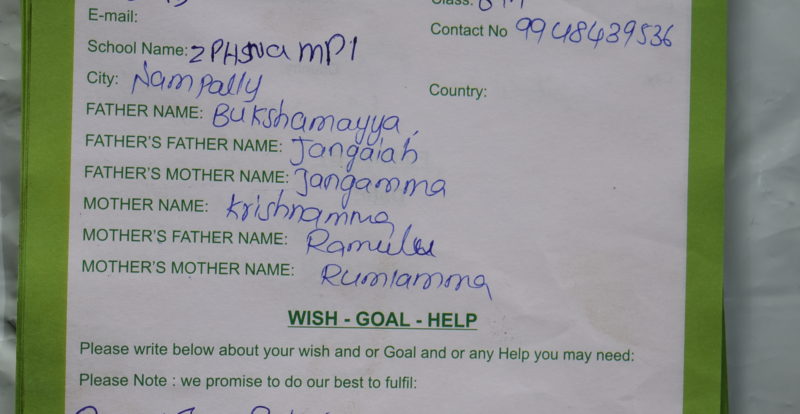 Class: 8th
E-mail:
Contact No 9948439536
School Name: ZPHS Na MPl
City: Nampally
Country:
FATHER NAME: Bukshamayya,
FATHER'S FATHER NAME: Jangaiah
FATHER'S MOTHER NAME: Jangamma
MOTHER NAME: Krishnamma
MOTHER'S FATHER NAME: Ramulu
MOTHER'S MOTHER NAME: Rumlamma
WISH - GOAL - HELP
Please write below about your wish and or Goal and or any Help you may need:
Please Note : we promise to do our best to fulfil: